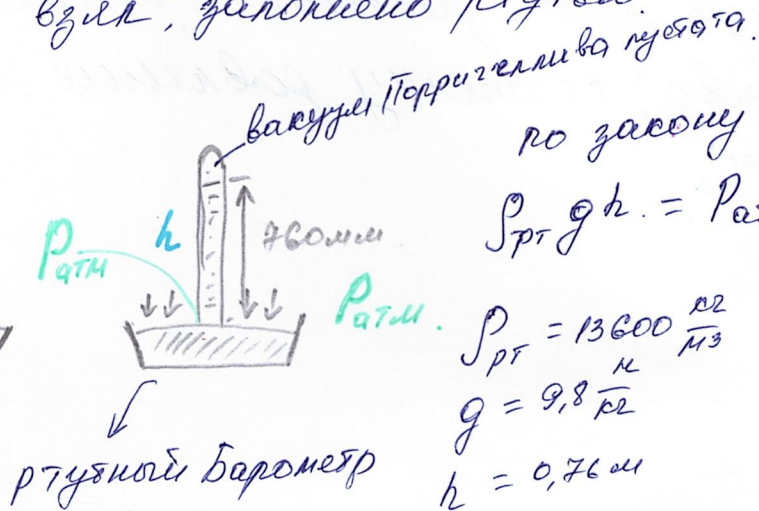 взял, заполнено ртутью.
вакуум Торричеллива пустата.
по закону
ρрт gh. = Pат
h
760мм
Pатм
Pатм.
ρрт = 13600 кг/м3
g = 9,8 н/кг
h = 0,76 м
ртутный Барометр